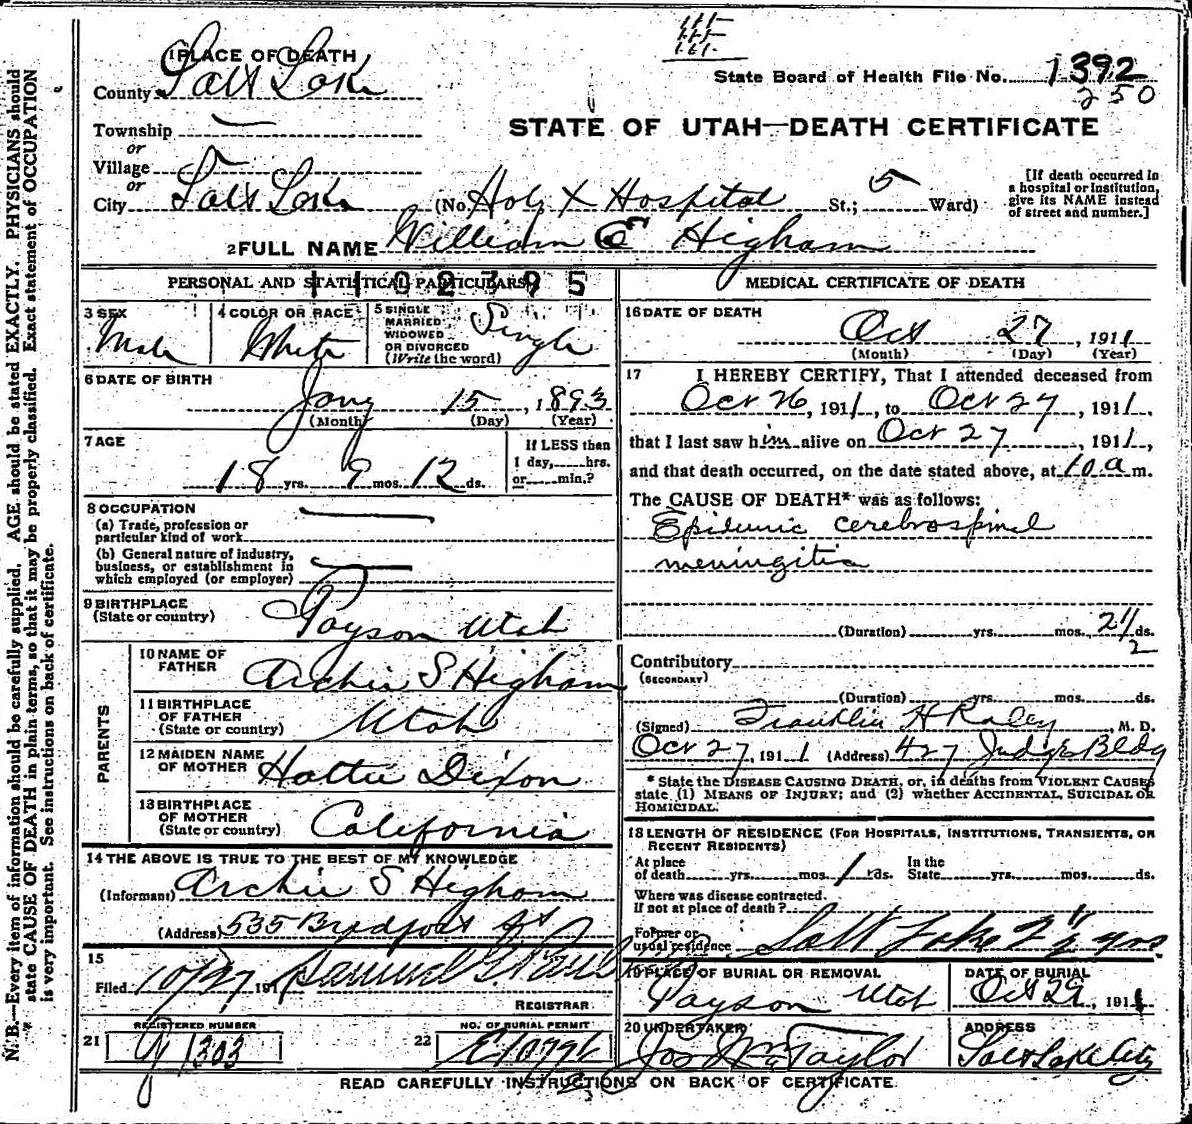 N.B.—Every item of information should be carefully supplied. AGE should be stated EXACTLY. PHYSICIANS should
state CAUSE OF DEATH in plain terms, so that it may be properly classified. Exact statement of OCCUPATION
is very important. See instructions on back of certificate.
1 PLACE OF DEATH
State Board of Health File No. 1392
250
County Salt Lake
STATE OF UTAH—DEATH CERTIFICATE
Township —
or
Village —
or
City Salt Lake (No Holy X Hospital St.; 5 Ward)
[If death occurred in
a hospital or institution,
give its NAME instead
of street and number.]
2 FULL NAME William E Higham
1102795
PERSONAL AND STATISTICAL PARTICULARS
3 SEX
Male
4 COLOR OR RACE
White
5 SINGLE
MARRIED
WIDOWED
OR DIVORCED
(Write the word)
Single
6 DATE OF BIRTH
Jany 15, 1893
(Month) (Day) (Year)
7 AGE
18 yrs. 9 mos. 12 ds.
If LESS than
1 day, hrs.
or min.?
8 OCCUPATION
(a) Trade, profession or
particular kind of work —
(b) General nature of industry,
business, or establishment in
which employed (or employer) —
9 BIRTHPLACE
(State or country)
Payson Utah
PARENTS
10 NAME OF
FATHER
Archie S Higham
11 BIRTHPLACE
OF FATHER
(State or country)
Utah
12 MAIDEN NAME
OF MOTHER
Hattie Dixon
13 BIRTHPLACE
OF MOTHER
(State or country)
California
14 THE ABOVE IS TRUE TO THE BEST OF MY KNOWLEDGE
(Informant) Archie S Higham
(Address) 535 Bradford
15
Filed 10/27 191 Samuel G. Paul
REGISTRAR
21
REGISTERED NUMBER
1303
22
NO. OF BURIAL PERMIT
MEDICAL CERTIFICATE OF DEATH
16 DATE OF DEATH
Oct 27, 1911
(Month) (Day) (Year)
17 I HEREBY CERTIFY, That I attended deceased from
Oct 26, 1911, to Oct 27, 1911,
that I last saw him alive on Oct 27, 1911,
and that death occurred, on the date stated above, at 10 a m.
The CAUSE OF DEATH* was as follows:
Epidemic cerebrospinal
meningitis
(Duration) yrs. mos. 2 1/2 ds.
Contributory
(SECONDARY)
(Duration) yrs. mos. ds.
(Signed) Franklin H Raley, M. D.
Oct 27, 1911 (Address) 427 Judge Bldg
* State the DISEASE CAUSING DEATH, or, in deaths from VIOLENT CAUSES
state (1) MEANS OF INJURY; and (2) whether ACCIDENTAL, SUICIDAL OR
HOMICIDAL.
18 LENGTH OF RESIDENCE (FOR HOSPITALS, INSTITUTIONS, TRANSIENTS, OR
RECENT RESIDENTS)
At place
of death yrs. mos. 1 ds.
In the
State yrs. mos. ds.
Where was disease contracted.
If not at place of death?
Former or
usual residence Salt Lake 2 1/2 yrs
19 PLACE OF BURIAL OR REMOVAL
Payson Utah
DATE OF BURIAL
Oct 29, 1911
20 UNDERTAKER
Jos Wm Taylor
ADDRESS
Salt Lake City
READ CAREFULLY INSTRUCTIONS ON BACK OF CERTIFICATE.